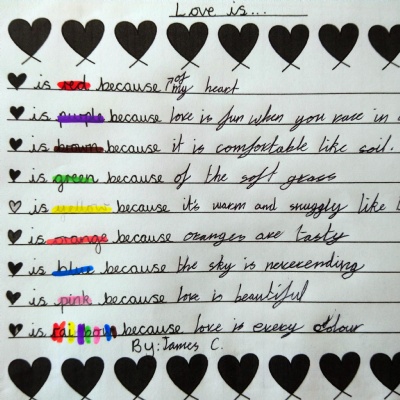 Love is...
♥ is red because of my heart
♥ is purple because love is fun when you race in
♥ is brown because it is comfortable like soil.
♥ is green because of the soft grass
♥ is yellow because it's warm and snuggly like
♥ is orange because oranges are tasty
♥ is blue because the sky is neverending
♥ is pink because love is beautiful
♥ is rainbow because love is every colour
By: James C.